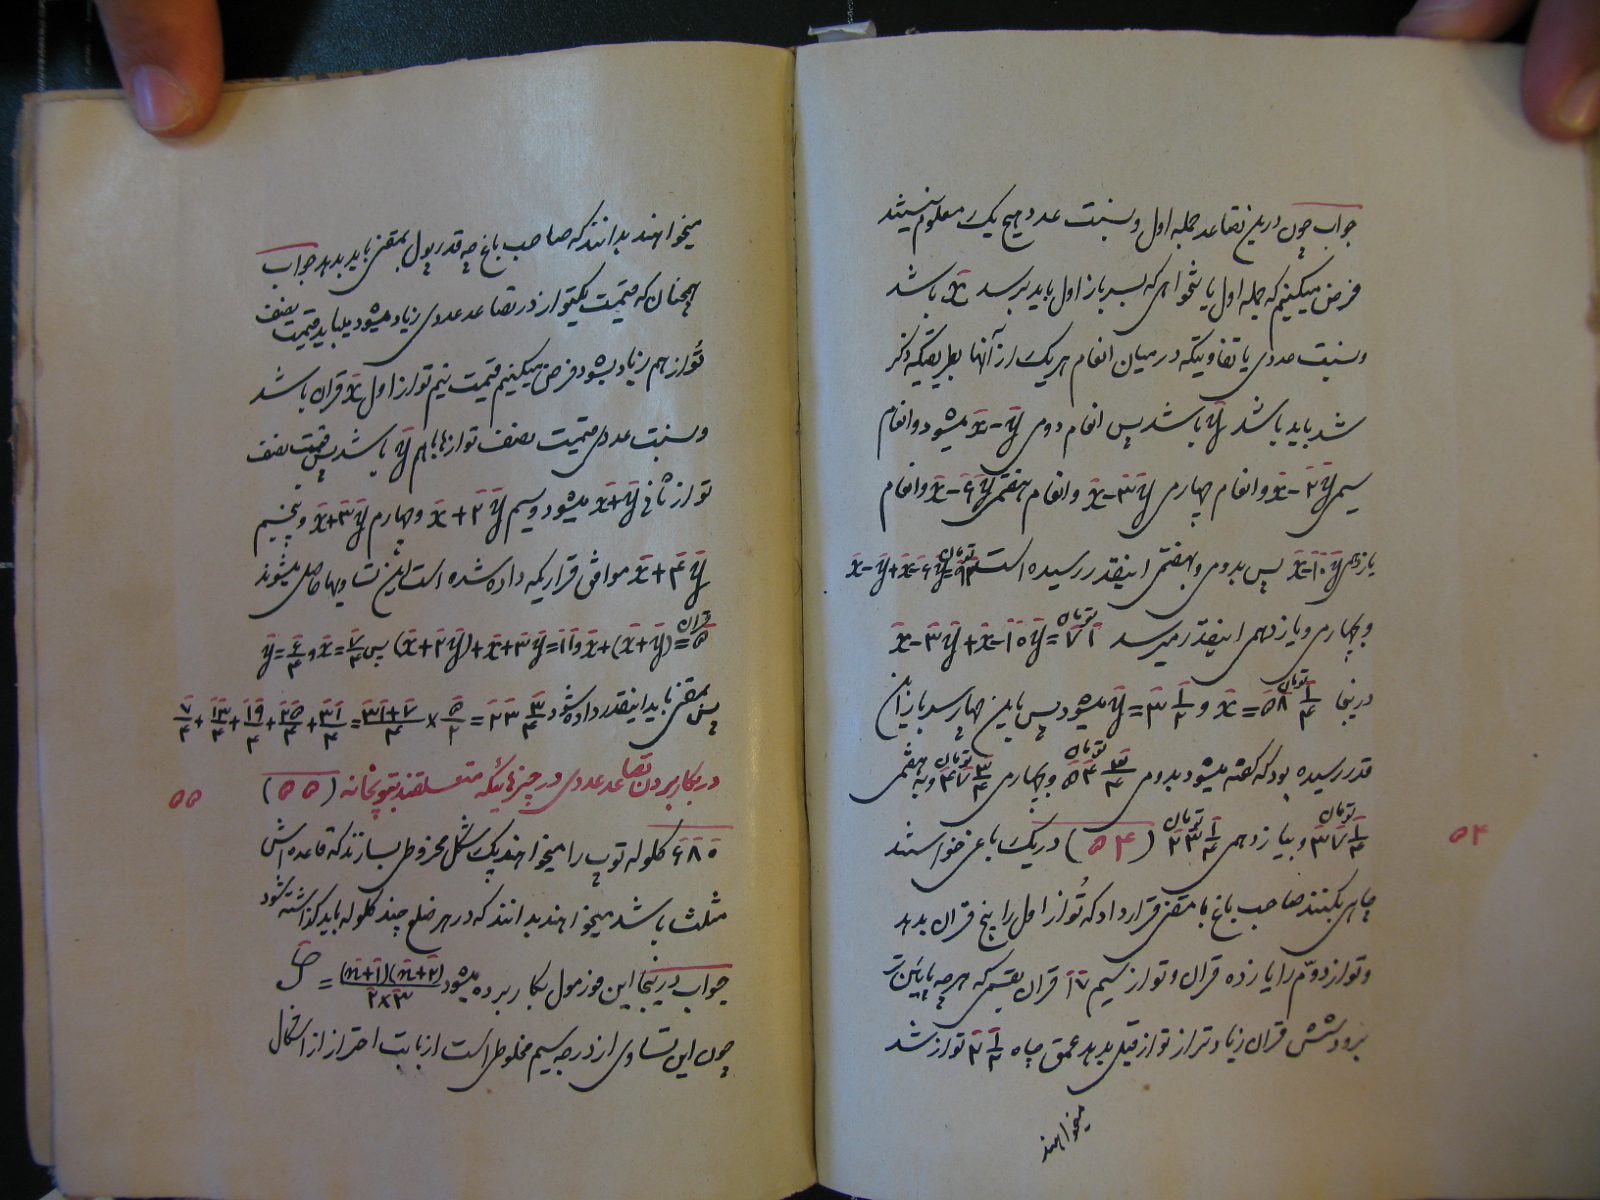 جواب چون درین تصاعد جمله اول و نسبت عدد هیچ یک معلوم نیستند
فرض میکنیم که جمله اول یا تنخواهی که بسرباز اول باید برسد x باشد
و نسبت عددی یا تفاوتیکه در میان انعام هر یک از آنها بطریقیکه ذکر
شد باید باشد y باشد پس انعام دومی x-y میشود و انعام
سیمی x-۲y و انعام چهارمی x-۳y و انعام هفتمی x-۶y و انعام
یازدهمی x-۱۰y پس بدومی و بهفتمی اینقدر رسیده است x-y+x-۶y=۹۲ تومان
و بچهارمی و یازدهمی اینقدر میرسد x-۳y+x-۱۰y=۷۱ تومان
درینجا ۵۸ ۱/۴ تومان = x و ۳ ۱/۲ = y میشود پس باین چهار سرباز این
قدر رسیده بود که گفته میشود بدومی ۵۴ ۳/۴ تومان و بچهارمی ۴۷ ۳/۴ تومان و به هفتمی
۳۷ ۱/۴ تومان و بیازدهمی ۲۳ ۱/۴ تومان (۵۴) در یک باغی خواستند
۵۴
چاهی بکنند صاحب باغ با مقنی قرارداد که تُواز اول را پنج قران بدهد
و تواز دوّم را یازده قران و تواز سیم ۱۷ قران بقسمی که هر چه پائین تر
برود شش قران زیادتر از تواز قبل بدهد عمق چاه ۲ ۱/۲ تواز شد
میخواهند
میخواهند بدانند که صاحب باغ چه قدر پول بمقنی باید بدهد جواب
همچنان که قیمت یکتواز در تصاعد عددی زیاد میشود میباید قیمت نصف
تُواز هم زیاد بشود فرض میکنیم قیمت نیم تواز اول x قران باشد
و نسبت عددی قیمت نصف توازها باهم y باشد پس قیمت نصف
تواز ثانی x+y میشود و سیم x+۲y و چهارم x+۳y و پنجیم
x+۴y موافق قراریکه داده شده است این تساویها حاصل میشوند
x+(x+y)=۵ قران و (x+۲y)+x+۳y=۱۱ پس x=۷/۴ و y=۶/۴
پس بمقنی باید اینقدر داده شود ۷/۴+۱۳/۴+۱۹/۴+۲۵/۴+۳۱/۴=(۳۱+۷)/۴×۵/۲=۲۳ ۳/۴
در بکار بردن تصاعد عددی در چیزهائیکه متعلقند بتوپخانه (۵۵)
۵۵
۶۸۰ گلوله توپ را میخواهند یک شکل مخروطی بسازند که قاعده اش
مثلث باشد میخواهند بدانند که در هر ضلع چند گلوله باید گذاشته شود
جواب درینجا این فورمول بکار برده میشود (n+۱)(n+۲)/۲×۳ =
چون این تساوی از درجه سیم مخلوطی است از بابت احتراز از اشکال